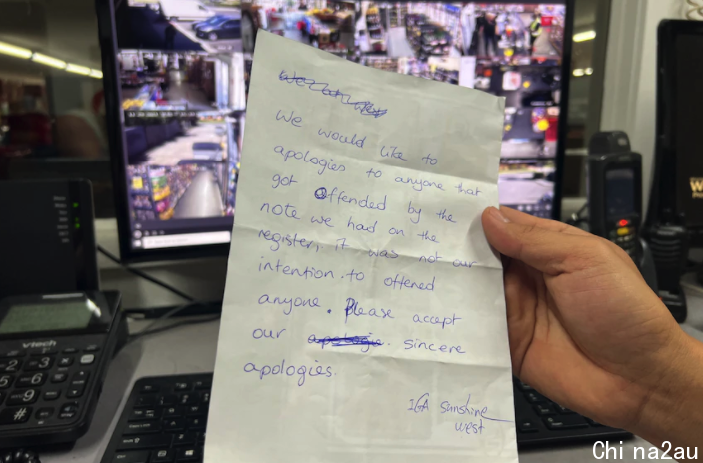 We would like to
apologies to anyone that
got offended by the
note we had on the
register, it was not our
intention.to offened
anyone. Please accept
our sincere
apologies.
IGA sunshine
west
vtech
Chi na2au